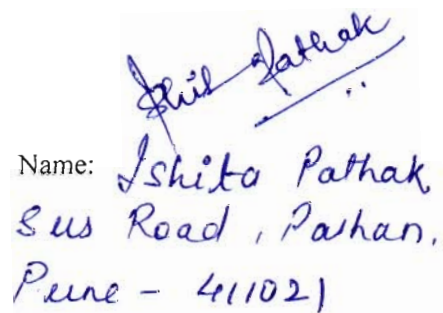 Ishita Pathak
Name: Ishita Pathak
Sus Road, Pashan,
Pune - 411021